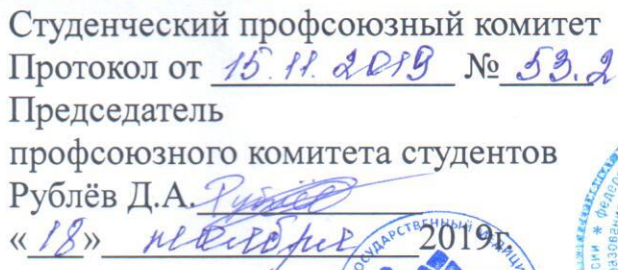 Студенческий профсоюзный комитет
Протокол от 15.11.2019 № 53.2
Председатель
профсоюзного комитета студентов
Рублёв Д.А.
«18» ноября 2019г.